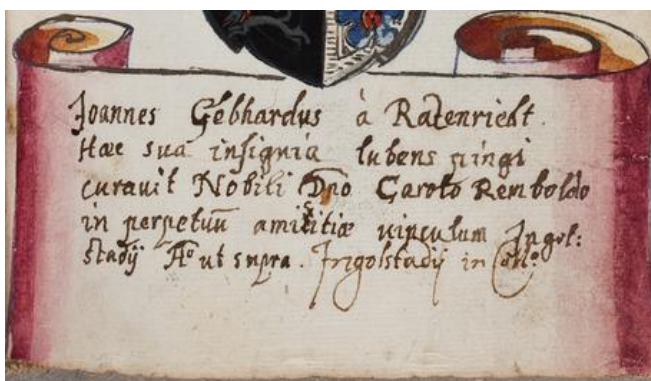 Joannes Gebhardus à Ratenriedt.
Hæc sua insignia lubens pingi
curavit Nobili Dno Carolo Remboldo
in perpetuũ amicitiæ vinculum Ingol:
stadij Ao ut supra. Ingolstadij in